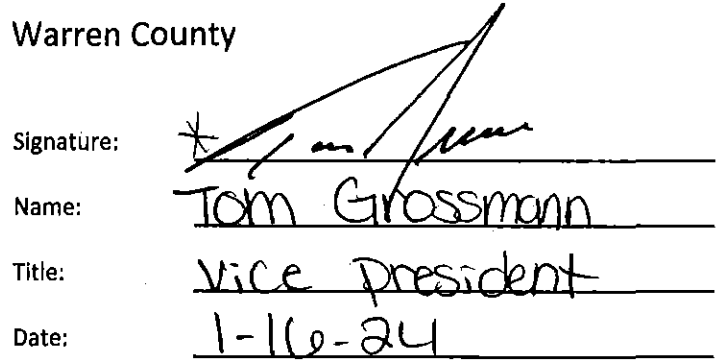 Warren County
Signature:
Name: Tom Grossmann
Title: Vice president
Date: 1-16-24